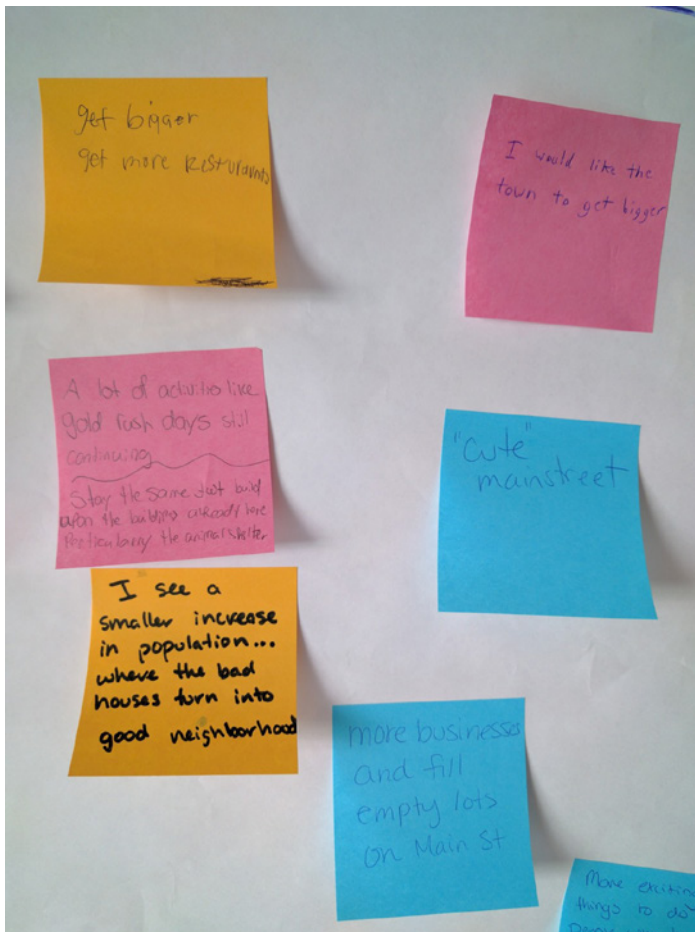 get bigger
get more Resturaunts
I would like the
town to get bigger
A lot of activities like
gold rush days still
continuing
Stay the same Just build
upon the building already here
Particularly the animal shelter
"cute"
mainstreet
I see a
smaller increase
in population...
where the bad
houses turn into
good neighborhood
more businesses
and fill
empty lots
on Main St
More exciting
things to do